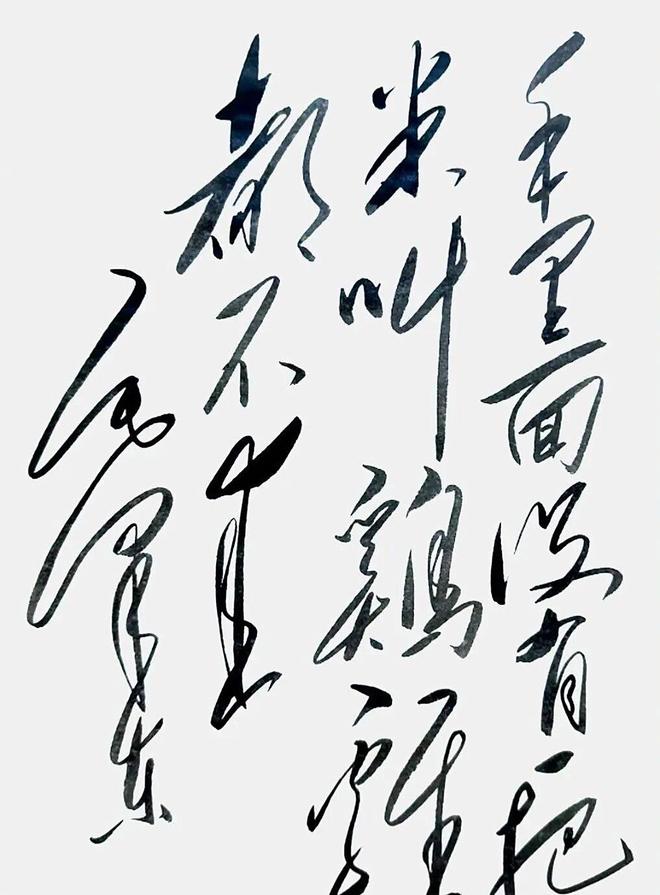 手里面没有一把
米叫鷄雞
都不来
毛泽东